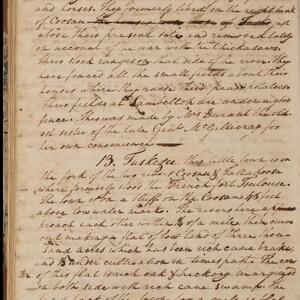 and horses. They formerly lived on the right bank
of Coosau just
above their present site and removed lately
on account of the war with the Chickasaws.
Their stock ranges on that side of the river. They
have fenced all the small fields about their
houses where they raise their peas & potatoes
Their fields at are under a good
fence. This was made by Mrs Durant the old
est sister of the late Genl McGillivray for
her own convenience
13. Tuskegee this little town is in
the fork of the two rivers Coosau & Tallapoosa
where formerly stood the French fort Toulouse.
The town is on a bluff on the Coosau 46 feet
above low water mark. The rivers here ap
proach each other within 1/4 of a mile, then curve
out making a flat of low land of three thou
sand acres which has been rich cane brake,
and under cultivation in times past. The cen
of this flat is rich oak & hickory margined
on both sides with rich cane swamp. The